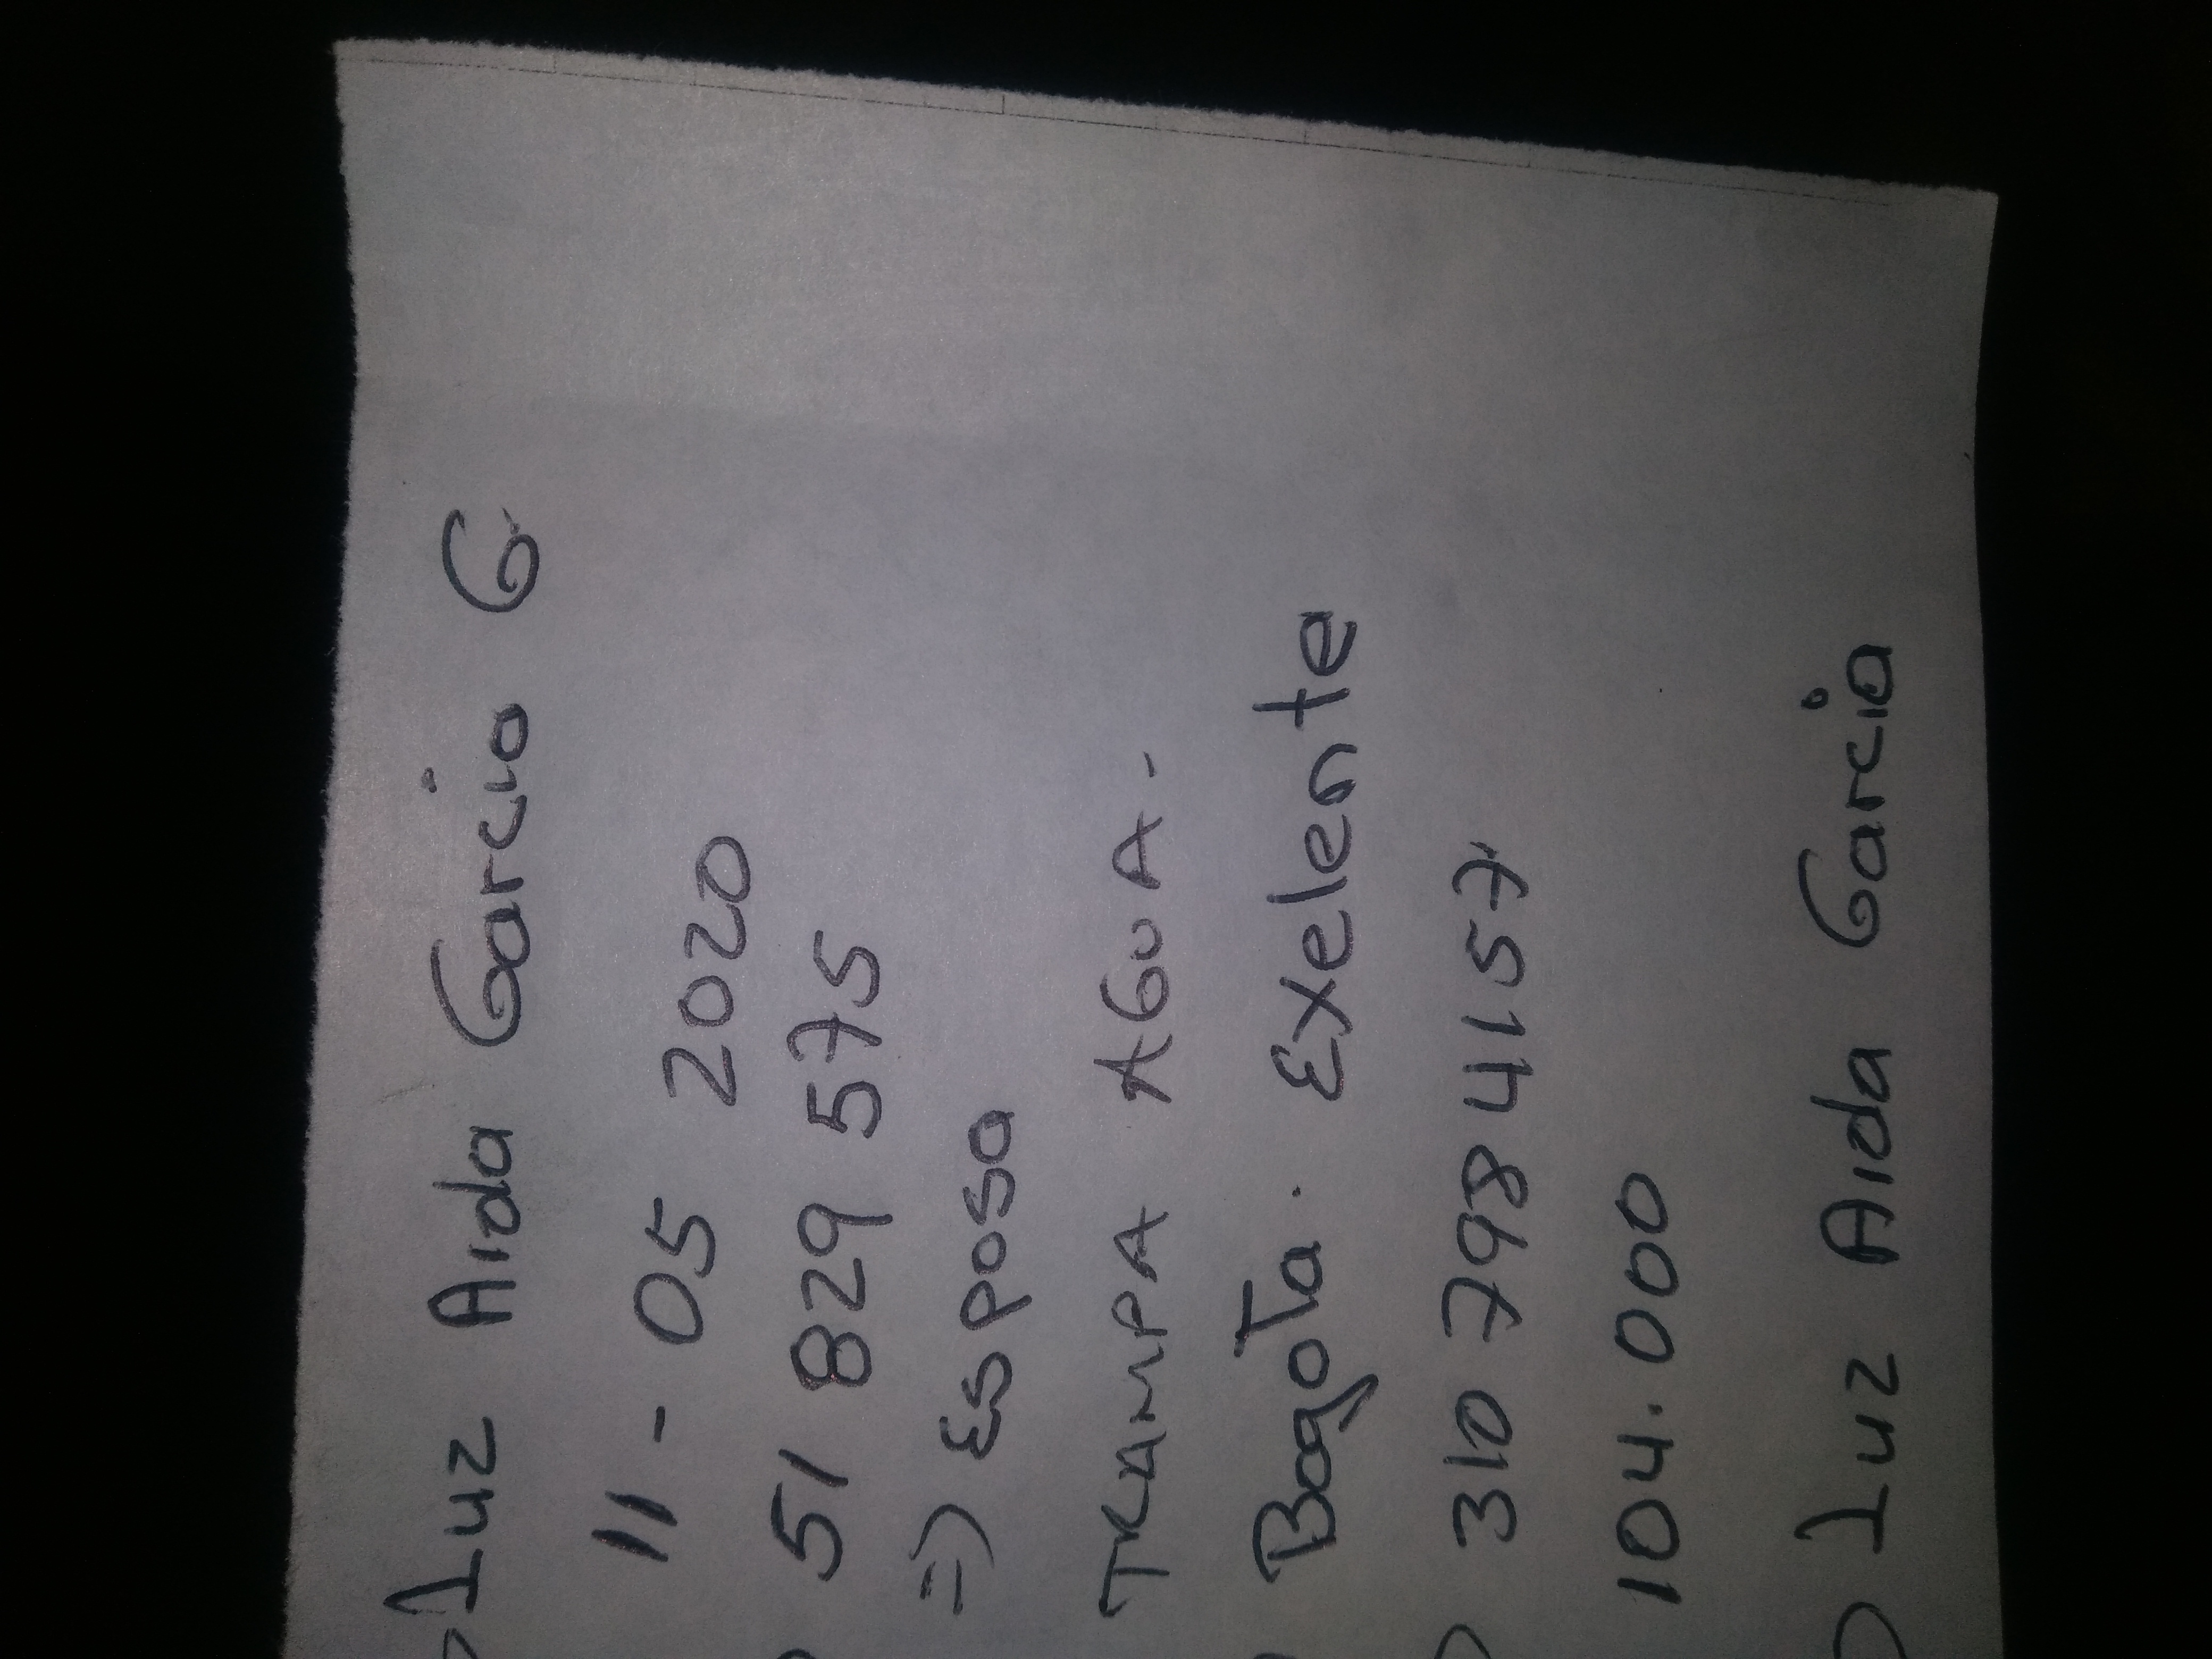 Luz Aida Garcia G
11 - 05 2020
51 829 575
=> Esposa
TRAMPA AGUA.
Bogota. Exelente
310 798 4157
104.000
Luz Aida Garcia